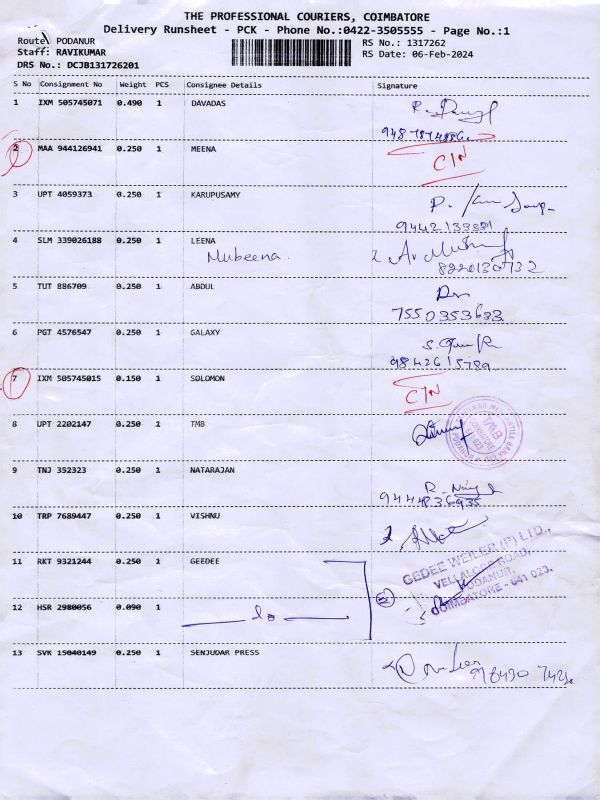 THE PROFESSIONAL COURIERS, COIMBATORE
Delivery Runsheet - PCK - Phone No.:0422-3505555 - Page No.:1
Route: PODANUR
RS No.: 1317262
Staff: RAVIKUMAR
RS Date: 06-Feb-2024
DRS No.: DCJB131726201
S No Consignment No Weight PCS Consignee Details Signature
1 IXM 505745071 0.490 1 DAVADAS
2 MAA 944126941 0.250 1 MEENA C/N
3 UPT 4059373 0.250 1 KARUPUSAMY
9442133381
4 SLM 339026188 0.250 1 LEENA
Mubeena.
8220130732
5 TUT 886709 0.250 1 ABDUL
7550353683
6 PGT 4576547 0.250 1 GALAXY
9842615789
7 IXM 505745015 0.150 1 SOLOMON C/N
8 UPT 2202147 0.250 1 TMB
9 TNJ 352323 0.250 1 NATARAJAN
9444836935
10 TRP 7689447 0.250 1 VISHNU
11 RKT 9321244 0.250 1 GEEDEE
GEDEE WEILER (P) LTD.,
VELLALORE ROAD,
PODANUR,
COIMBATORE - 641 023.
12 HSR 2980056 0.090 1 do
13 SVK 15040149 0.250 1 SENJUDAR PRESS